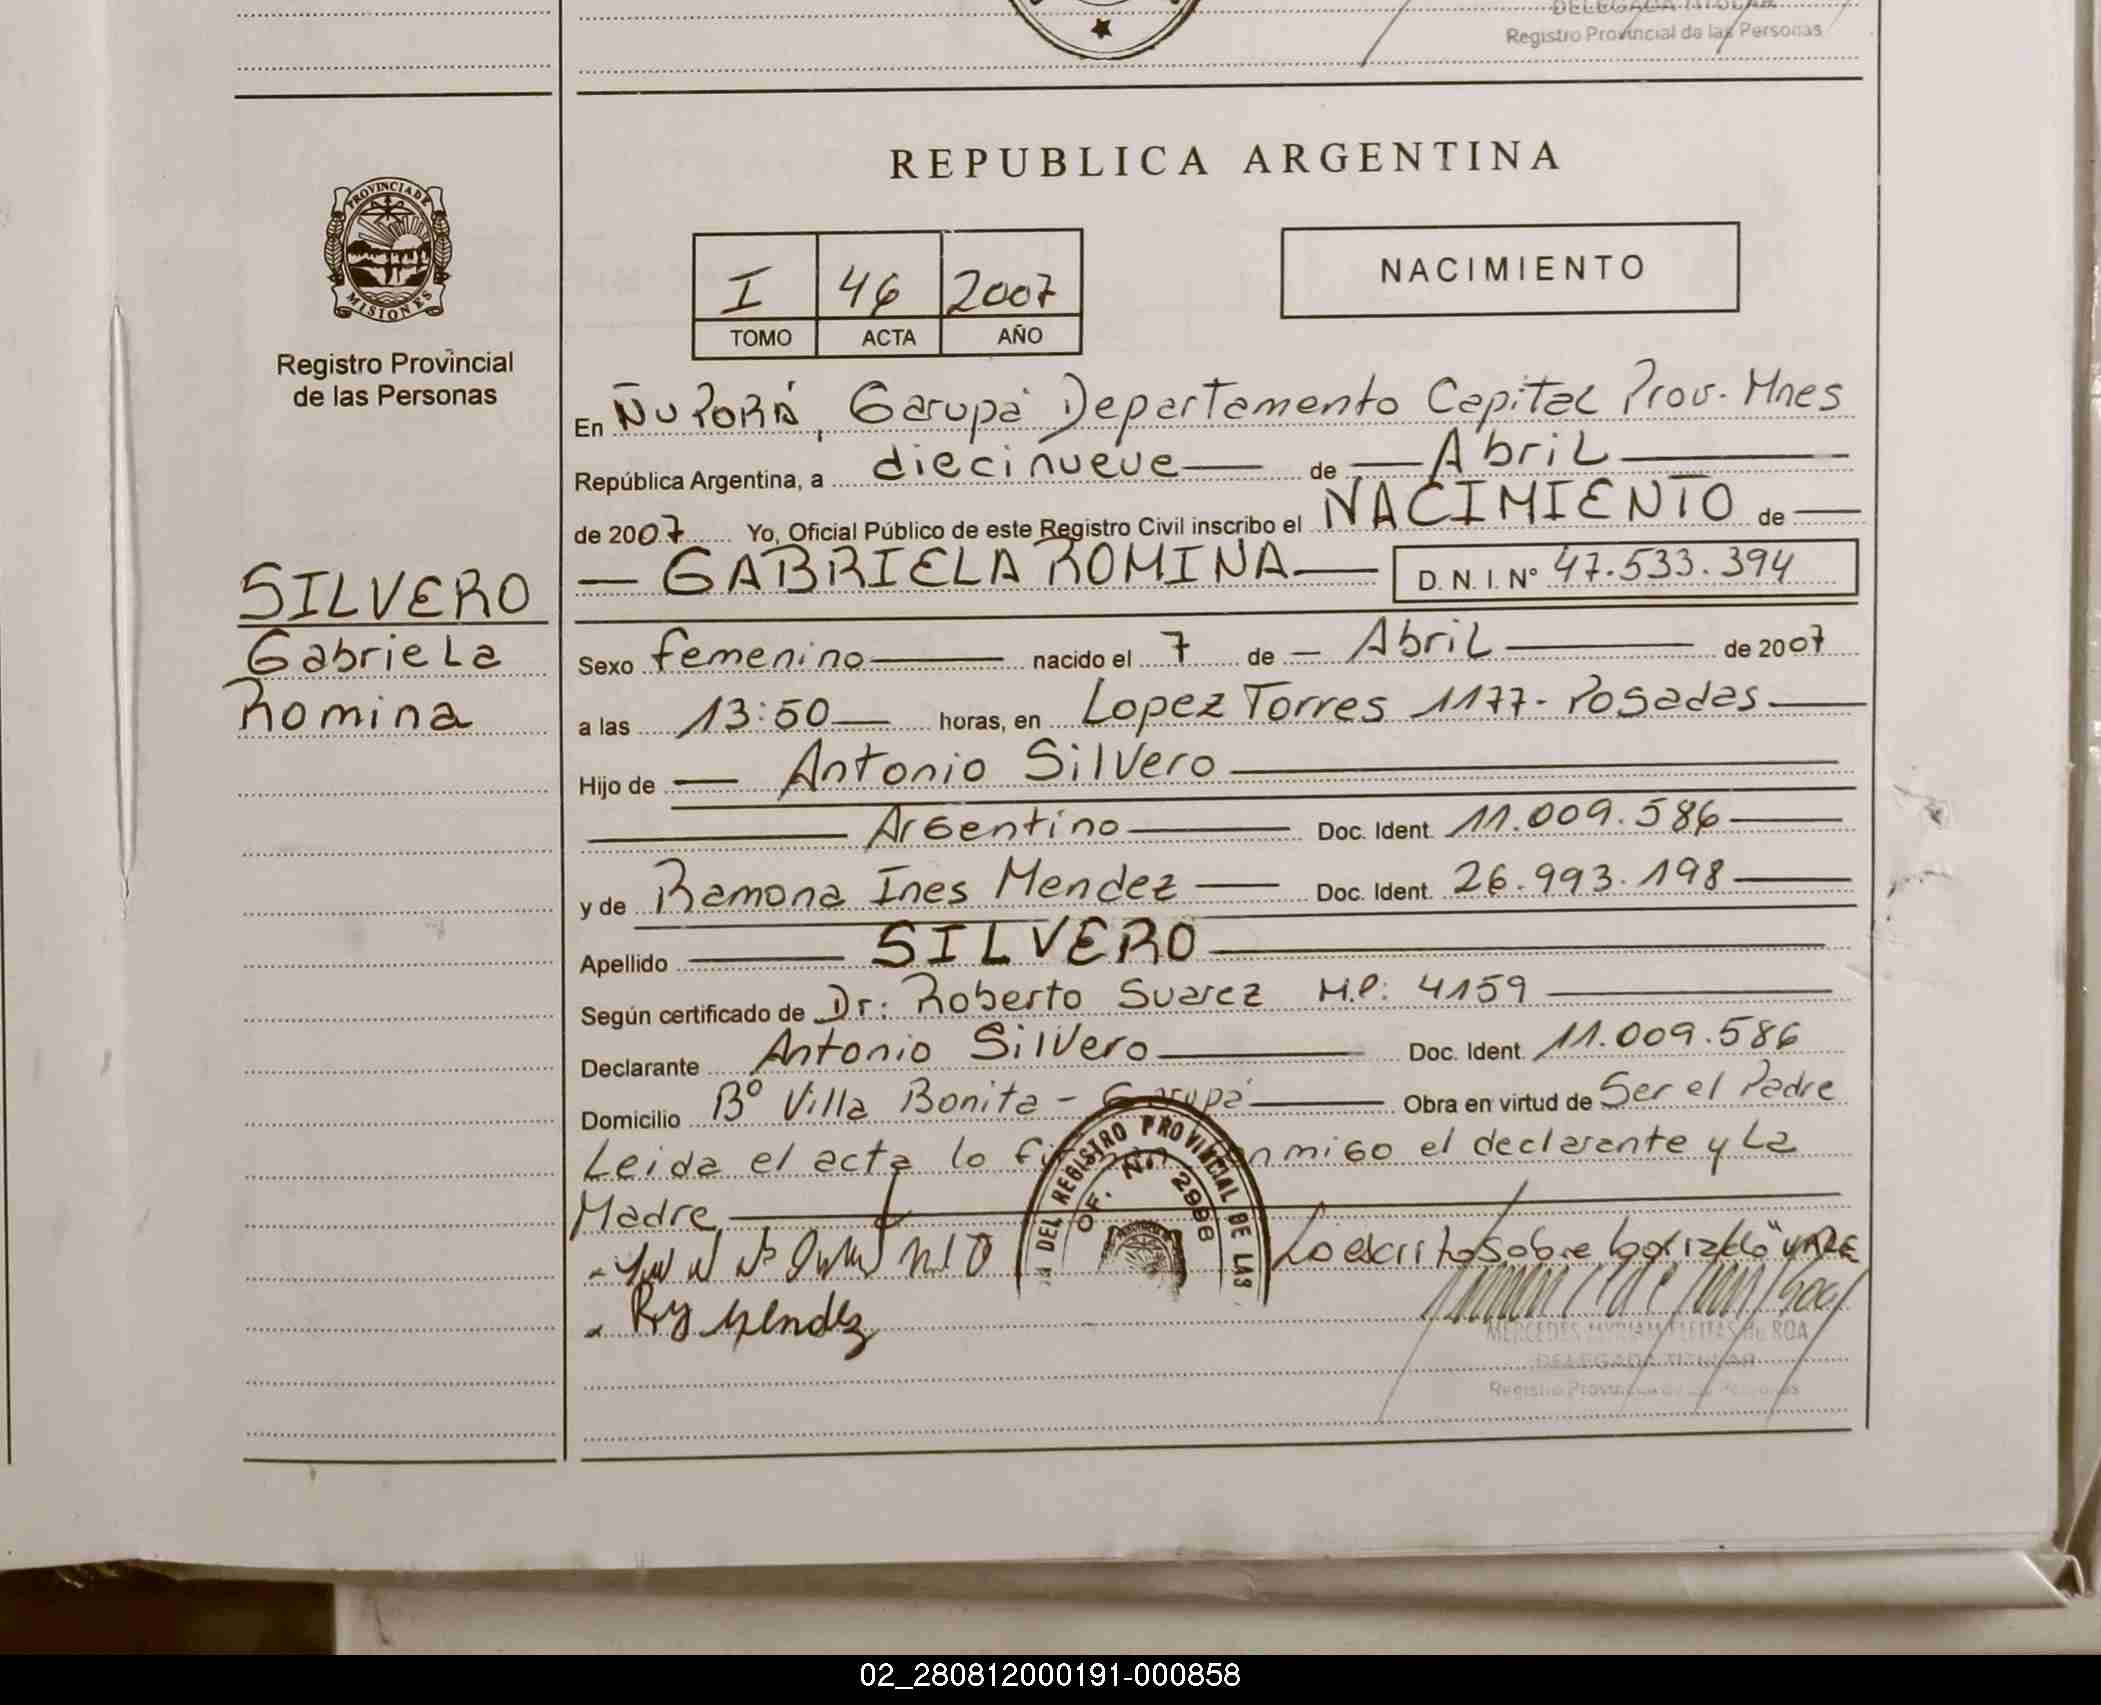 DELEGADA TITULAR
Registro Provincial de las Personas
REPUBLICA ARGENTINA
PROVINCIA DE
MISIONES
Registro Provincial
de las Personas
I 46 2007
TOMO ACTA AÑO
NACIMIENTO
En Ñu Porá, Garupá Departamento Capital Prov. Mnes
República Argentina, a diecinueve de Abril
de 2007 Yo, Oficial Público de este Registro Civil inscribo el NACIMIENTO de
GABRIELA ROMINA D. N. I. Nº 47.533.394
SILVERO
Gabriela
Romina
Sexo femenino nacido el 7 de Abril de 2007
a las 13:50 horas, en Lopez Torres 1177- Posadas
Hijo de Antonio Silvero
Argentino Doc. Ident. 11.009.586
y de Ramona Ines Mendez Doc. Ident. 26.993.198
Apellido SILVERO
Según certificado de Dr: Roberto Suarez M.P: 4159
Declarante Antonio Silvero Doc. Ident. 11.009.586
Domicilio Bº Villa Bonita - Garupá Obra en virtud de Ser el Padre
Leida el acta lo firman conmigo el declarante y La
Madre
DEL REGISTRO PROVINCIAL DE LAS
OF. Nº 2998
Lo escrito sobre borrado
Mendez
MERCEDES MYRIAM FLEITAS de ROA
DELEGADA TITULAR
Registro Provincial de las Personas
02_280812000191-000858